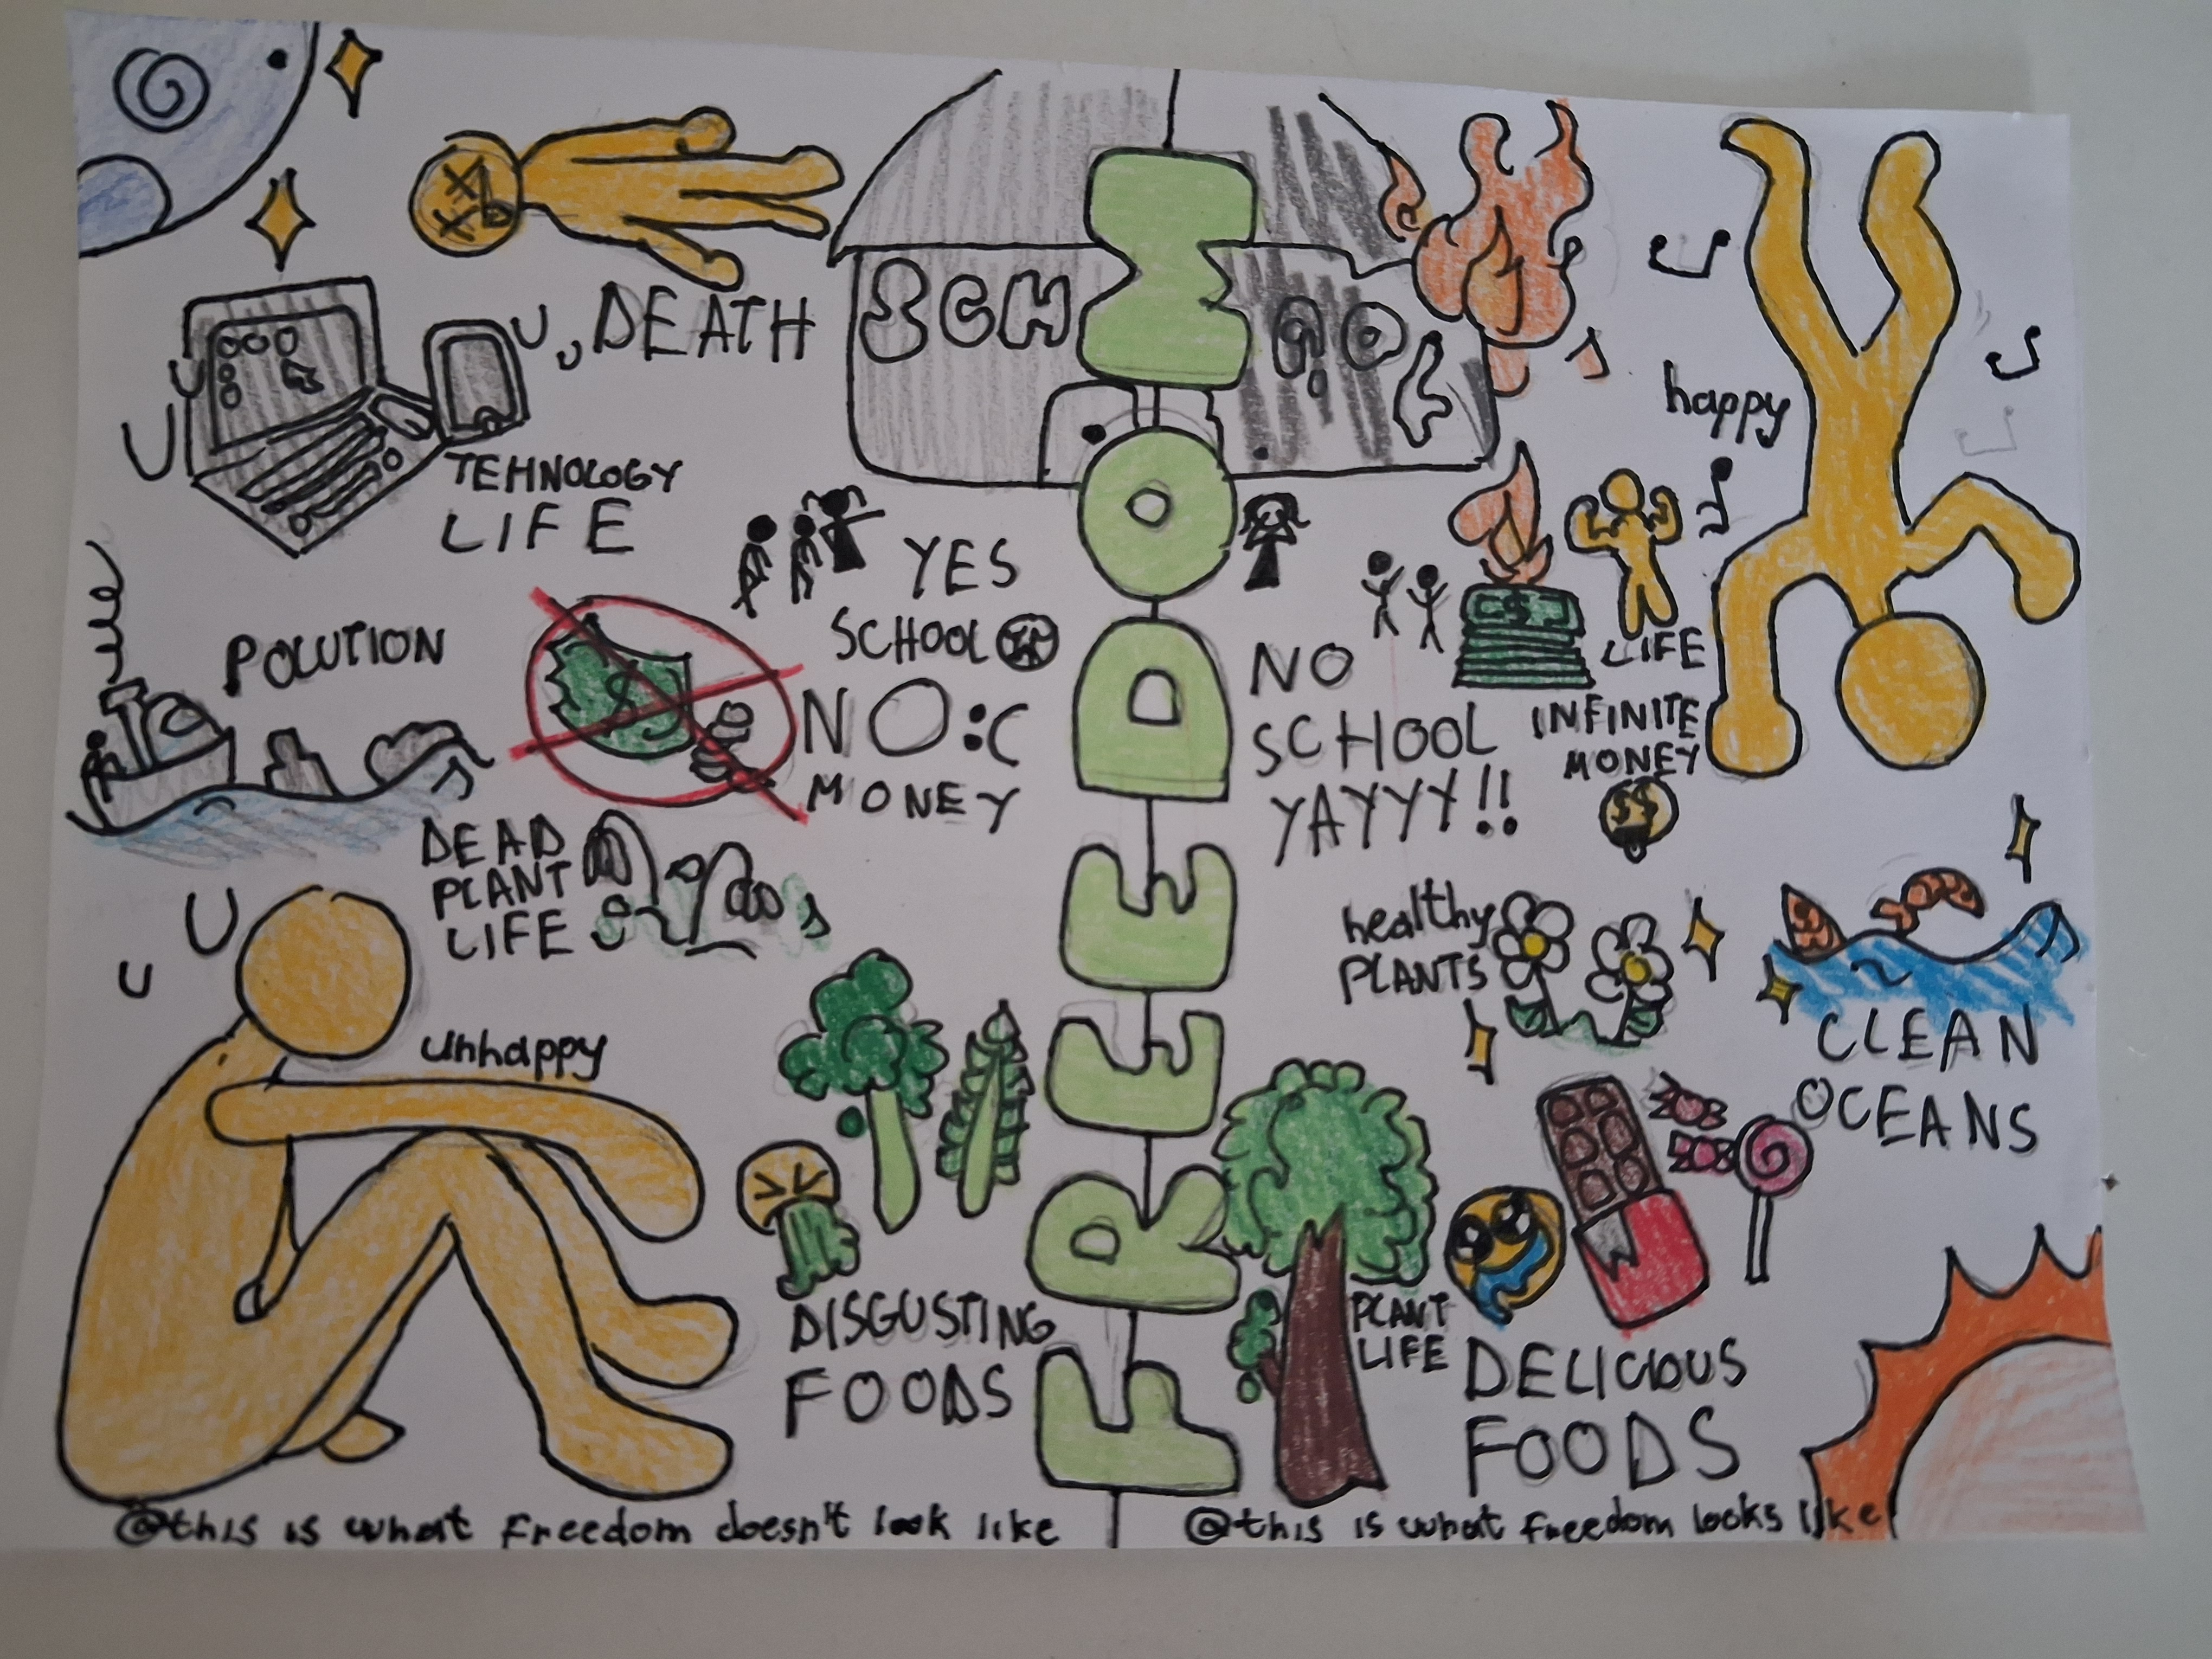 SCHOOL
FREEDOM
DEATH
TEHNOLOGY
LIFE
YES
SCHOOL
POLUTION
NO :C
MONEY
DEAD
PLANT
LIFE
unhappy
DISGUSTING
FOODS
@this is what freedom doesn't look like
happy
LIFE
NO
SCHOOL
YAYYY!!
INFINITE
MONEY
$$
healthy
PLANTS
CLEAN
OCEANS
PLANT
LIFE
DELICIOUS
FOODS
@this is what freedom looks like